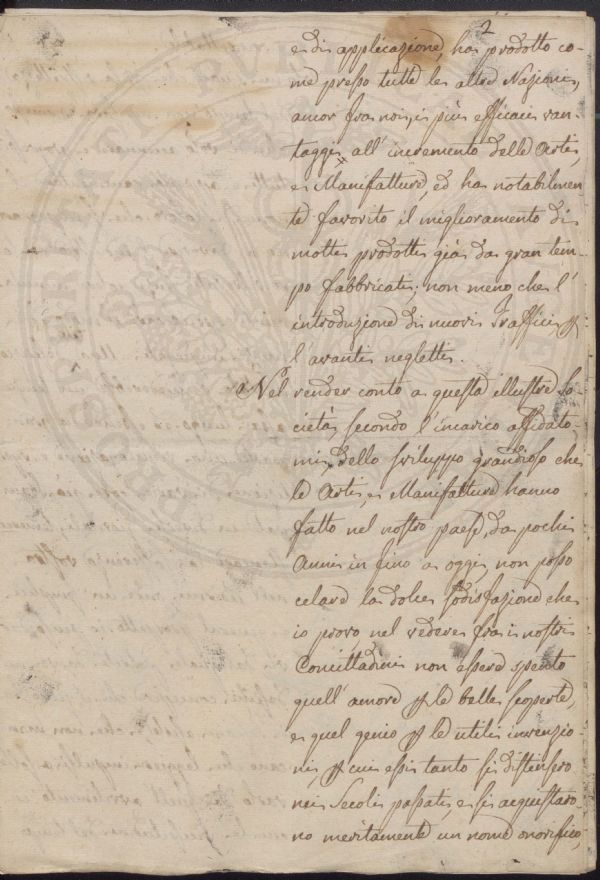 2
e di applicazione, ha prodotto co-
me presso tutte le altre Nazioni,
ancor fra noi, i più efficaci van-
taggi all'incremento delle Arti,
e Manifatture, ed ha notabilmen-
te favorito il miglioramento di
molti prodotti già da gran tem-
po fabbricati; non meno che l'
introduzione di nuovi Traffici p
l'avanti negletti.
Nel render conto a questa illustre So
cietà, secondo l'incarico affidato-
mi, dello sviluppo grandioso che
le Arti, e Manifatture hanno
fatto nel nostro paese, da pochi
Anni in fino a oggi, non posso
celare la dolce sodisfazione che
io provo nel vedere fra i nostri
Concittadini non essere spento
quell'amore p le belle scoperte,
e quel genio p le utili invenzio
ni, p cui essi tanto si distinsero
nei Secoli passati, e si acquistaro-
no meritamente un nome onorifico,